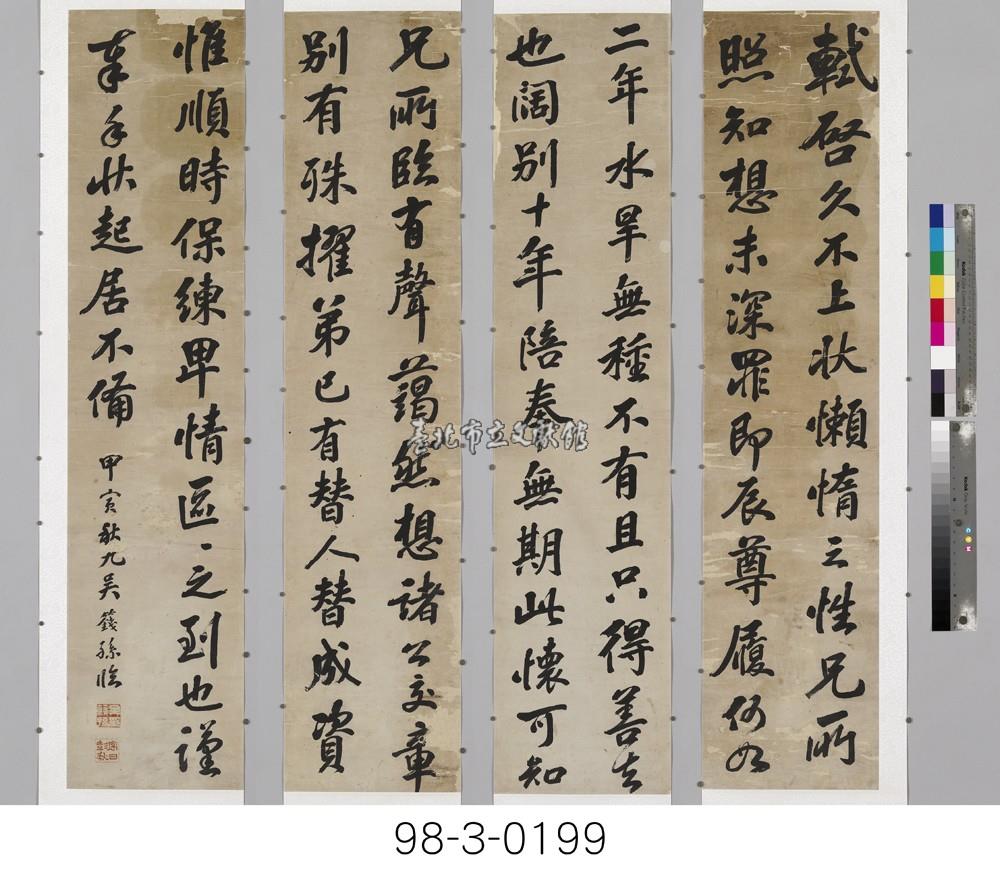 軾啓久不上狀懶惰之性兄所
照知想未深罪即辰尊履何如
二年水旱無種不有且只得善去
也闊別十年陪奉無期此懷可知
兄所臨有聲藹然想諸公交章
別有殊擢弟已有替人替成資
惟順時保練卑情區區之到也謹
奉手狀起居不備
甲寅秋九吳籛孫臨
臺北市立文獻館
98-3-0199